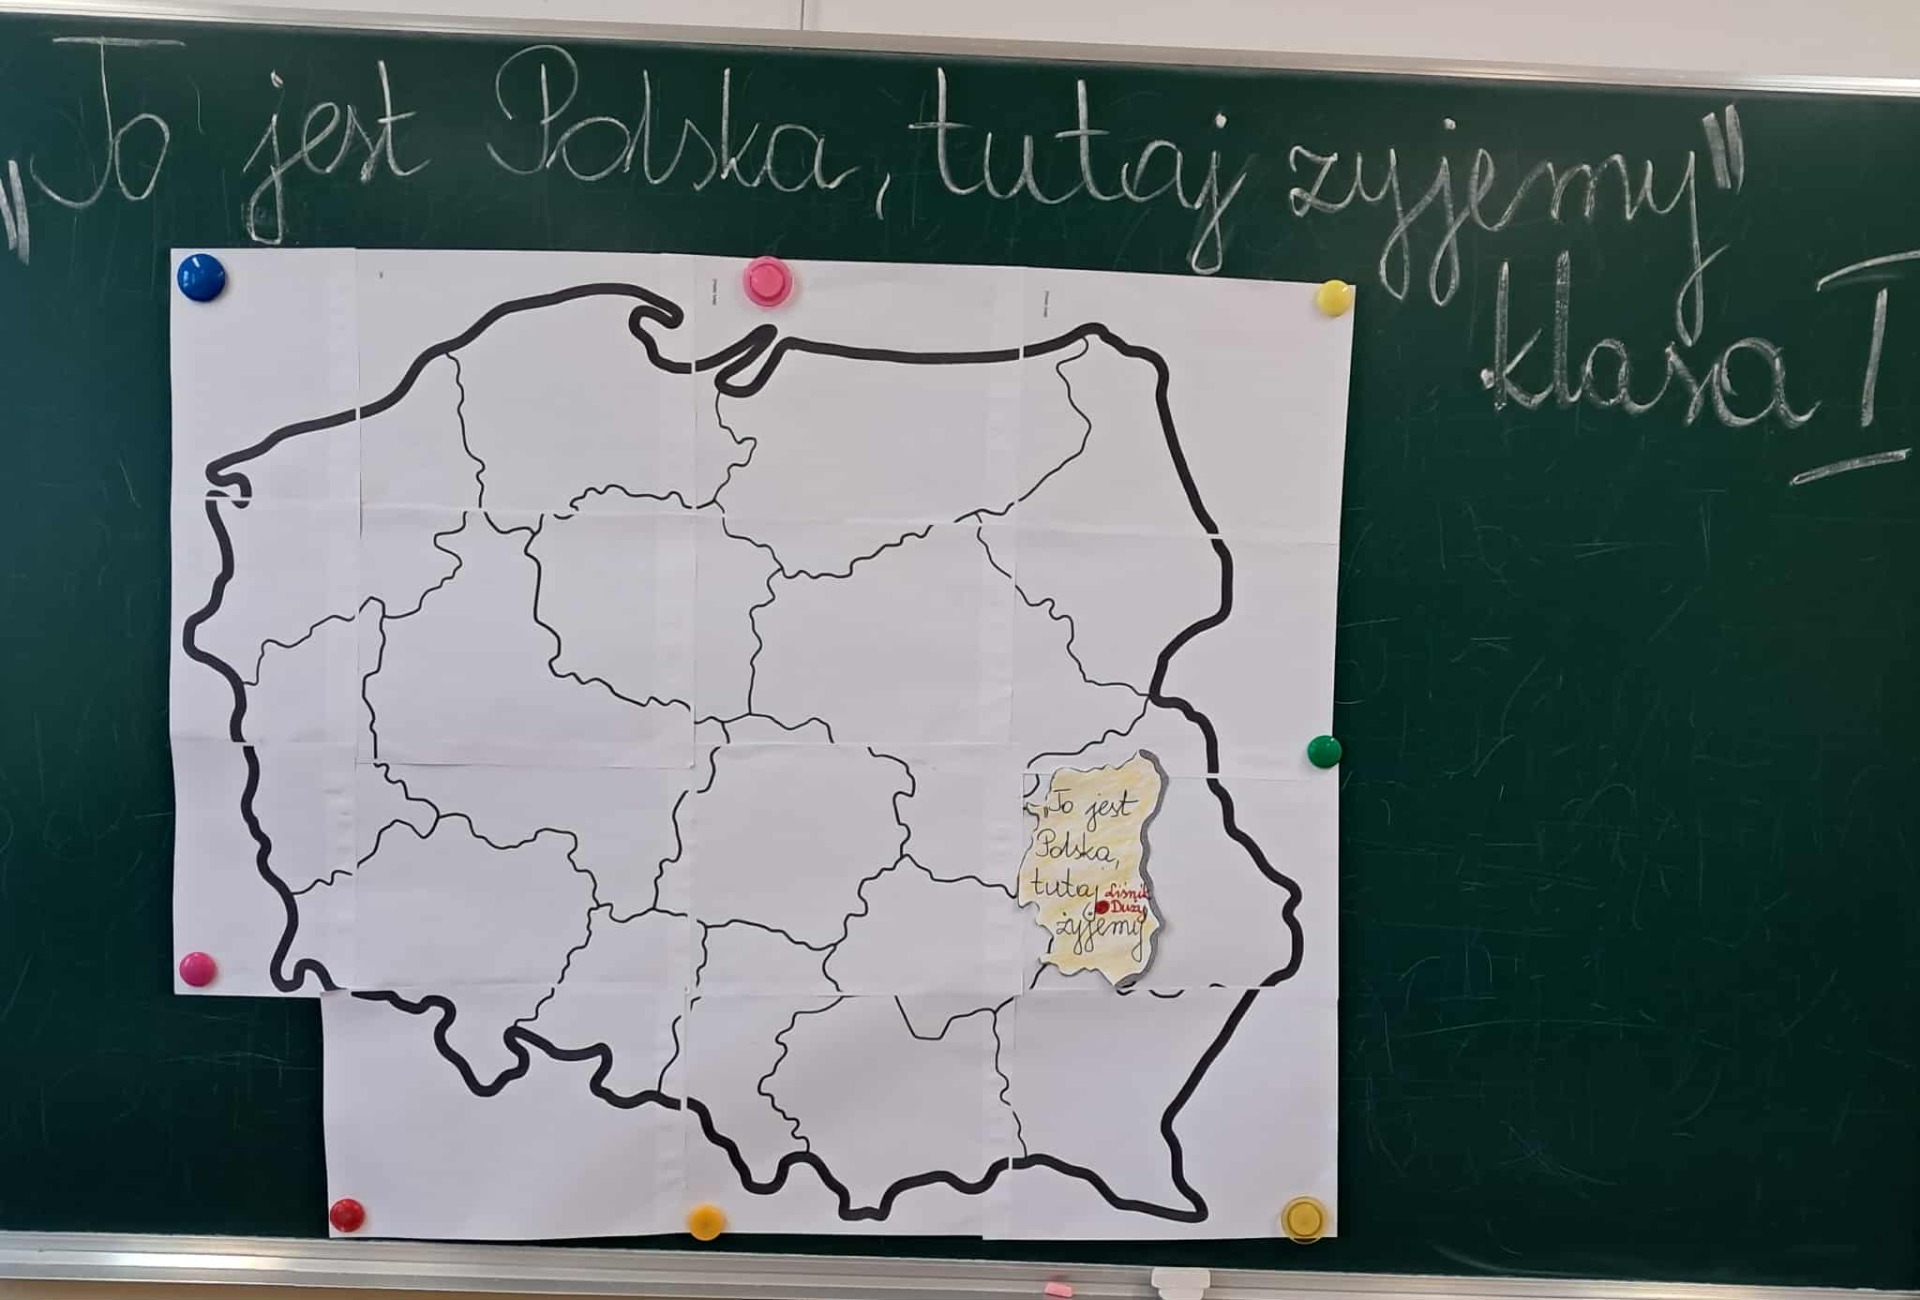 „To jest Polska, tutaj żyjemy"
klasa I
„To jest
Polska,
tutaj
żyjemy
Liśnik
Duży